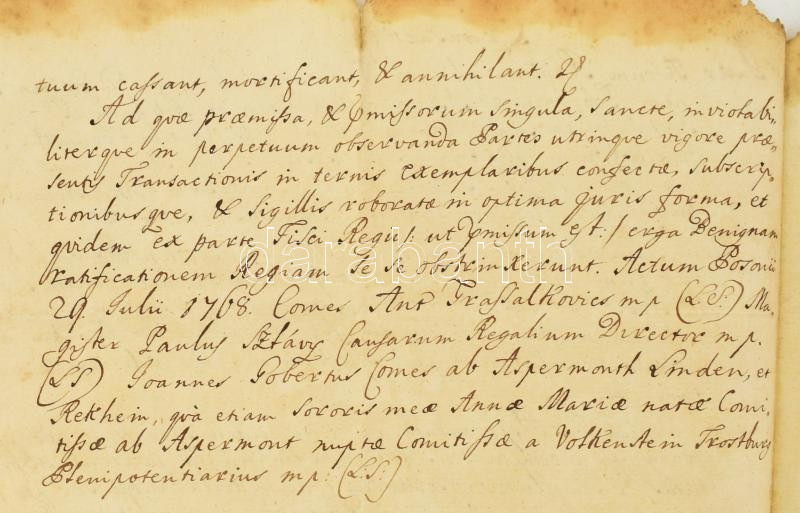 tuum cassant, mortificant, & annihilant.
Ad quæ præmissa, & pmissorum singula, sancte, inviolabi-
literque in perpetuum observanda Partes utrinque vigore præ-
sentis Transactionis in ternis exemplaribus confectæ, subscrip-
tionibusque, & sigillis roboratæ in optima juris forma, et
quidem ex parte Fisci Regii /: ut pmissum est :/ erga Benignam
ratificationem Regiam se se obstrinxerunt. Actum Posonii
29. Julii 1768. Comes Ant Grassalkovics mp (L:S:) Ma-
gister Paulus Sztávis Causarum Regalium Director mp.
(LS) Joannes Gobertus Comes ab Aspermonth Linden, et
Rekhein, quà etiam sororis meæ Annæ Mariæ natæ Comi-
tissæ ab Aspermont nuptæ Comitissæ a Volkenstein Trostburg
Plenipotentiarius mp: (L:S:)
darabanth